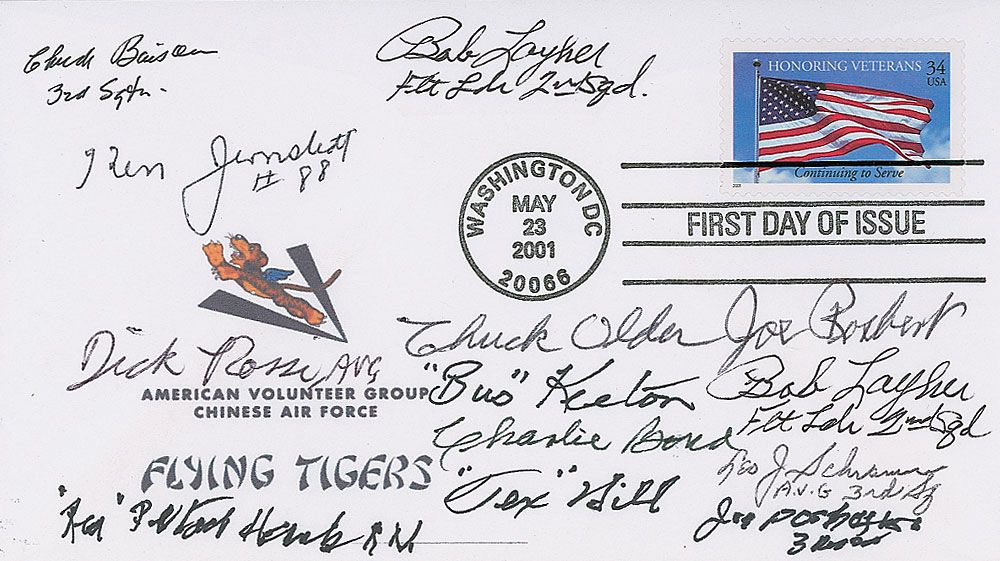 Chuck Baisden
3rd Sqdn.
Bob Layher
Flt Ldr 2nd Sqd.
HONORING VETERANS 34
USA
Continuing to Serve
2001
Ken Jernstedt
# 88
WASHINGTON DC
MAY
23
2001
20066
FIRST DAY OF ISSUE
Chuck Older
Joe Rosbert
Dick Rossi, AVG
AMERICAN VOLUNTEER GROUP
CHINESE AIR FORCE
"Bus" Keeton
Bob Layher
Flt Ldr 2nd Sqd
Charlie Bond
FLYING TIGERS
"Tex" Hill
Leo J. Schramm
A.V.G 3rd Sq
"Red" R.N.
Joe